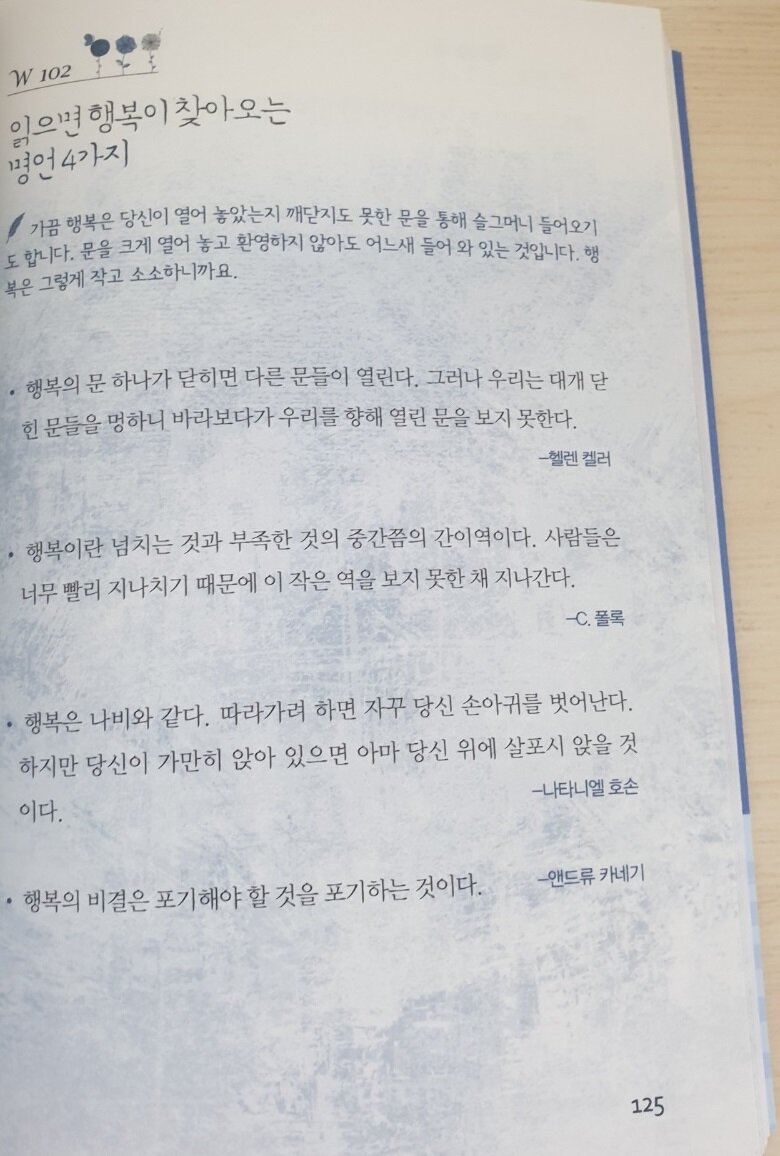 W 102
읽으면 행복이 찾아오는
명언 4가지
가끔 행복은 당신이 열어 놓았는지 깨닫지도 못한 문을 통해 슬그머니 들어오기
도 합니다. 문을 크게 열어 놓고 환영하지 않아도 어느새 들어 와 있는 것입니다. 행
복은 그렇게 작고 소소하니까요.
• 행복의 문 하나가 닫히면 다른 문들이 열린다. 그러나 우리는 대개 닫
힌 문들을 멍하니 바라보다가 우리를 향해 열린 문을 보지 못한다.
–헬렌 켈러
• 행복이란 넘치는 것과 부족한 것의 중간쯤의 간이역이다. 사람들은
너무 빨리 지나치기 때문에 이 작은 역을 보지 못한 채 지나간다.
–C. 폴록
• 행복은 나비와 같다. 따라가려 하면 자꾸 당신 손아귀를 벗어난다.
하지만 당신이 가만히 앉아 있으면 아마 당신 위에 살포시 앉을 것
이다.
–나타니엘 호손
• 행복의 비결은 포기해야 할 것을 포기하는 것이다.
–앤드류 카네기
125